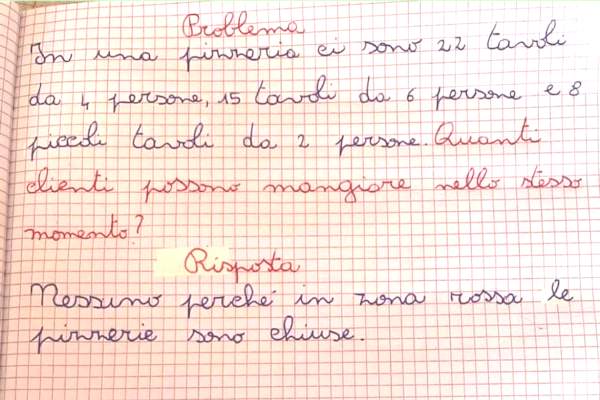 Problema
In una pizzeria ci sono 22 tavoli
da 4 persone, 15 tavoli da 6 persone e 8
piccoli tavoli da 2 persone. Quanti
clienti possono mangiare nello stesso
momento?
Risposta
Nessuno perché in zona rossa le
pizzerie sono chiuse.